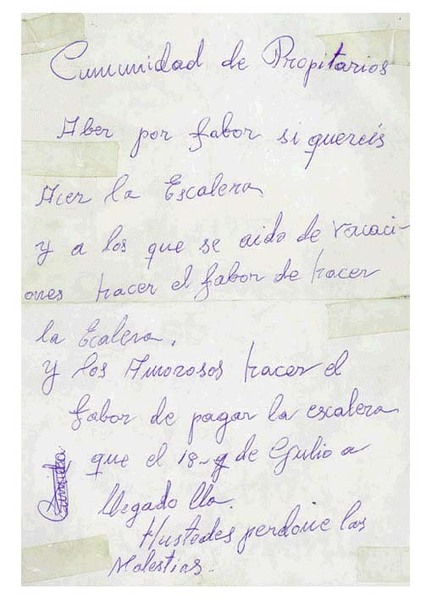 Cumunidad de Propitarios
Aber por fabor si quereis
Acer la Escalera
y a los que se aido de vacaci-
ones hacer el fabor de hacer
la Ecalera.
y los Amorosos hacer el
fabor de pagar la escalera
que el 18-9 de Gulio a
llegado lla.
Hustedes perdone las
Molestias.